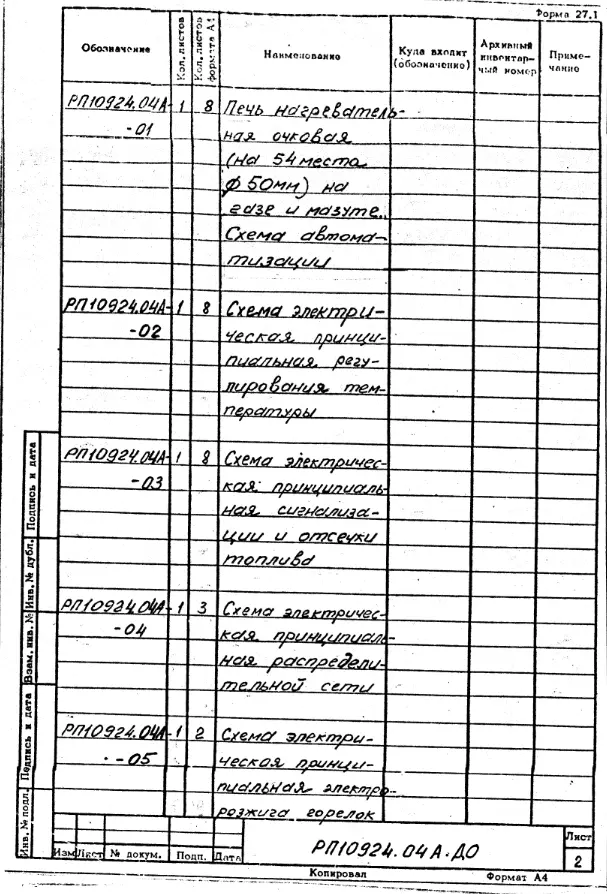 Форма 27.1
Обозначение
Кол. листов
Кол. листов формата А4
Наименование
Куда входит (обозначение)
Архивный инвентарный номер
Примечание
РП10924.04А- 1 8 Печь нагреватель-
-01 ная очковая
(на 54 места
ф 50мм) на
газе и мазуте.
Схема автома-
тизации
РП10924.04А- 1 8 Схема электри-
-02 ческая принци-
пиальная регу-
лирования тем-
пературы
РП10924.04А- 1 8 Схема электричес-
-03 кая принципиаль-
ная сигнализа-
ции и отсечки
топлива
РП10924.04А- 1 3 Схема электричес-
-04 кая принципиаль-
ная распредели-
тельной сети
РП10924.04А- 1 2 Схема электри-
-05 ческая принци-
пиальная электро-
розжига горелок
Инв. № подл.
Подпись и дата
Взам. инв. №
Инв. № дубл.
Подпись и дата
Изм Лист № докум. Подп. Дата
РП10924.04А.ДО
Лист
2
Копировал
Формат А4